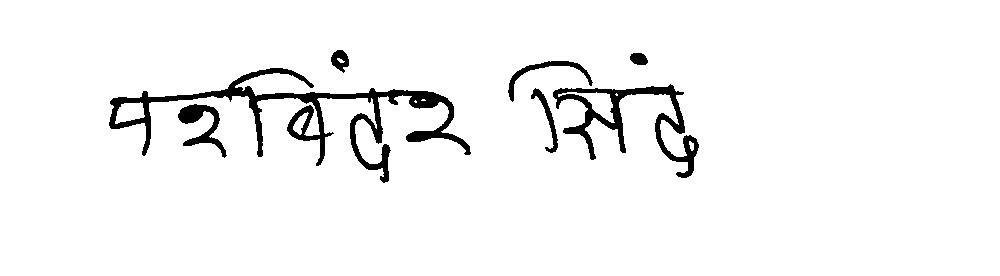 परबिंदर सिंह